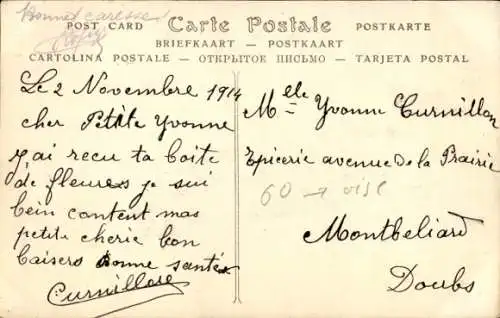 Bonnes caresses
POST CARD Carte Postale POSTKARTE
BRIEFKAART — POSTKAART
CARTOLINA POSTALE — ОТКРЫТОЕ ПИСЬМО — TARJETA POSTAL
Le 2 Novembre 1914
cher Petite Yvonne
J'ai recu ta boite
de fleures je sui
bein content mas
petite cherie bon
baisers bonne santé
Curnillon
Melle Yvonne Curnillon
Epicerie avenue De la Prairie
60 → oise
Montbeliard
Doubs